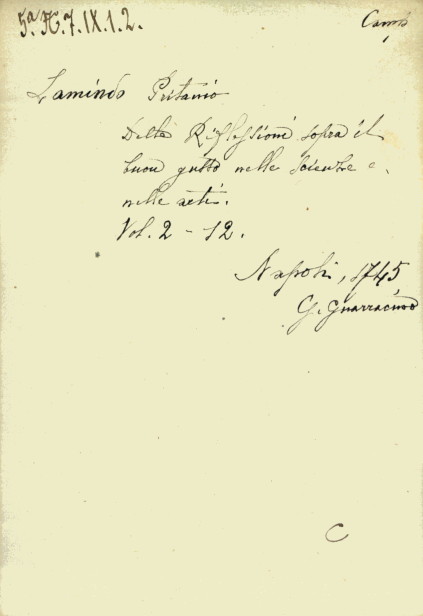 5ª.H.7.IX.1.2.
Camp
Lamindo Pritanio
Delle Riflessioni sopra il
buon gusto nelle scienze e
nelle arti.
Vol. 2 - 12.
Napoli, 1745
G. Guarracino
C